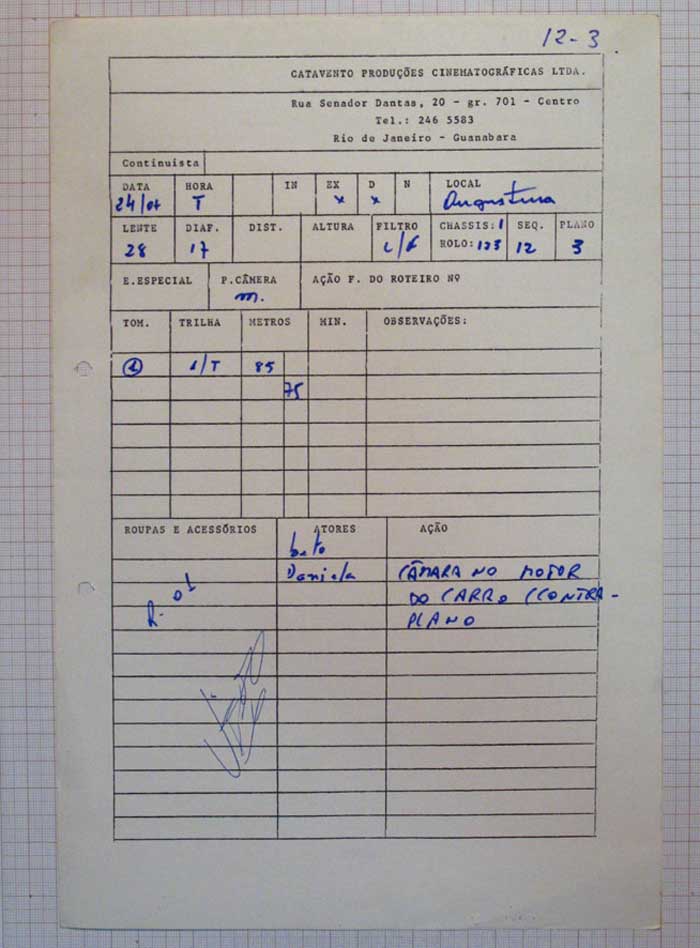 12-3
CATAVENTO PRODUÇÕES CINEMATOGRÁFICAS LTDA.
Rua Senador Dantas, 20 - gr. 701 - Centro
Tel.: 246 5583
Rio de Janeiro - Guanabara
Continuista
DATA HORA IN EX D N LOCAL
24/07 T x x
LENTE DIAF. DIST. ALTURA FILTRO CHASSIS: 1 SEQ. PLANO
28 17 ROLO: 123 12 3
E.ESPECIAL P.CÂMERA AÇÃO F. DO ROTEIRO Nº
m.
TOM. TRILHA METROS MIN. OBSERVAÇÕES:
1 1/T 85
75
ROUPAS E ACESSÓRIOS ATORES AÇÃO
beto
Daniela CÂMARA NO MOTOR
R. 01 DO CARRO (CONTRA-
PLANO